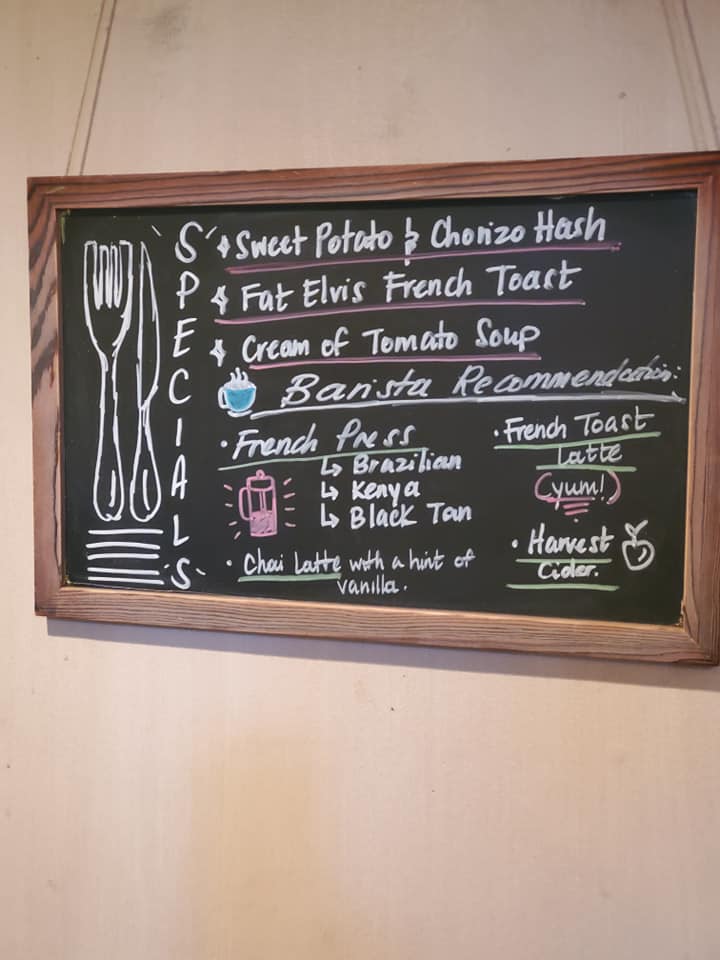 SPECIALS
Sweet Potato & Chorizo Hash
Fat Elvis French Toast
Cream of Tomato Soup
Barista Recommendation:
• French Press
↳ Brazilian
↳ Kenya
↳ Black Tan
• Chai Latte with a hint of
vanilla.
• French Toast
Latte
(yum!)
• Harvest
Cider.